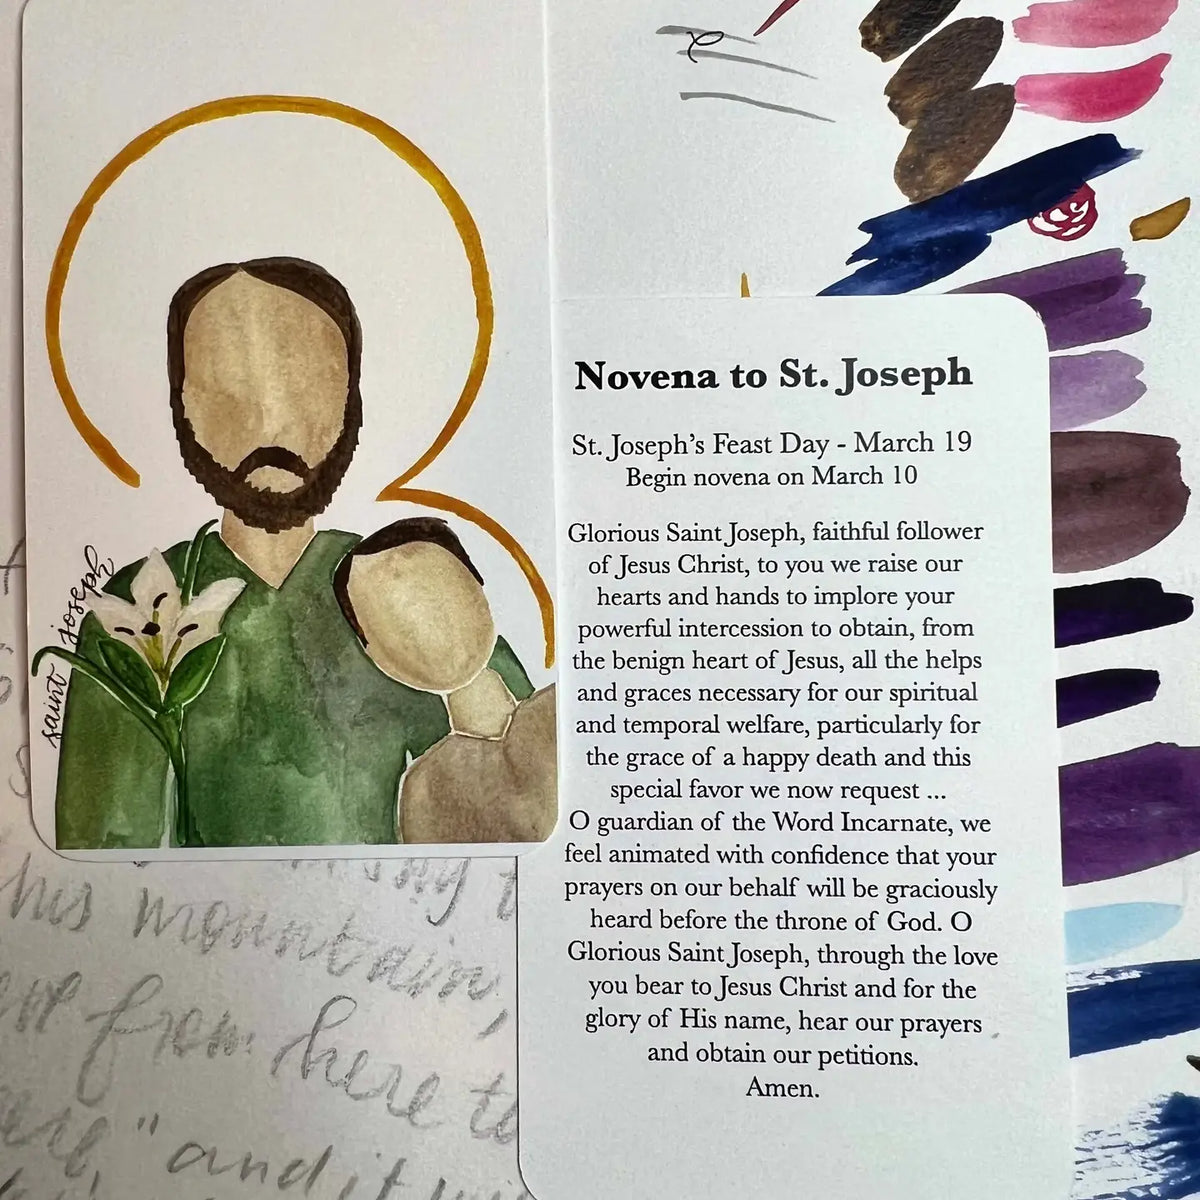 saint joseph
Novena to St. Joseph
St. Joseph's Feast Day - March 19
Begin novena on March 10
Glorious Saint Joseph, faithful follower
of Jesus Christ, to you we raise our
hearts and hands to implore your
powerful intercession to obtain, from
the benign heart of Jesus, all the helps
and graces necessary for our spiritual
and temporal welfare, particularly for
the grace of a happy death and this
special favor we now request ...
O guardian of the Word Incarnate, we
feel animated with confidence that your
prayers on our behalf will be graciously
heard before the throne of God. O
Glorious Saint Joseph, through the love
you bear to Jesus Christ and for the
glory of His name, hear our prayers
and obtain our petitions.
Amen.
his mountain,
from here
" and it